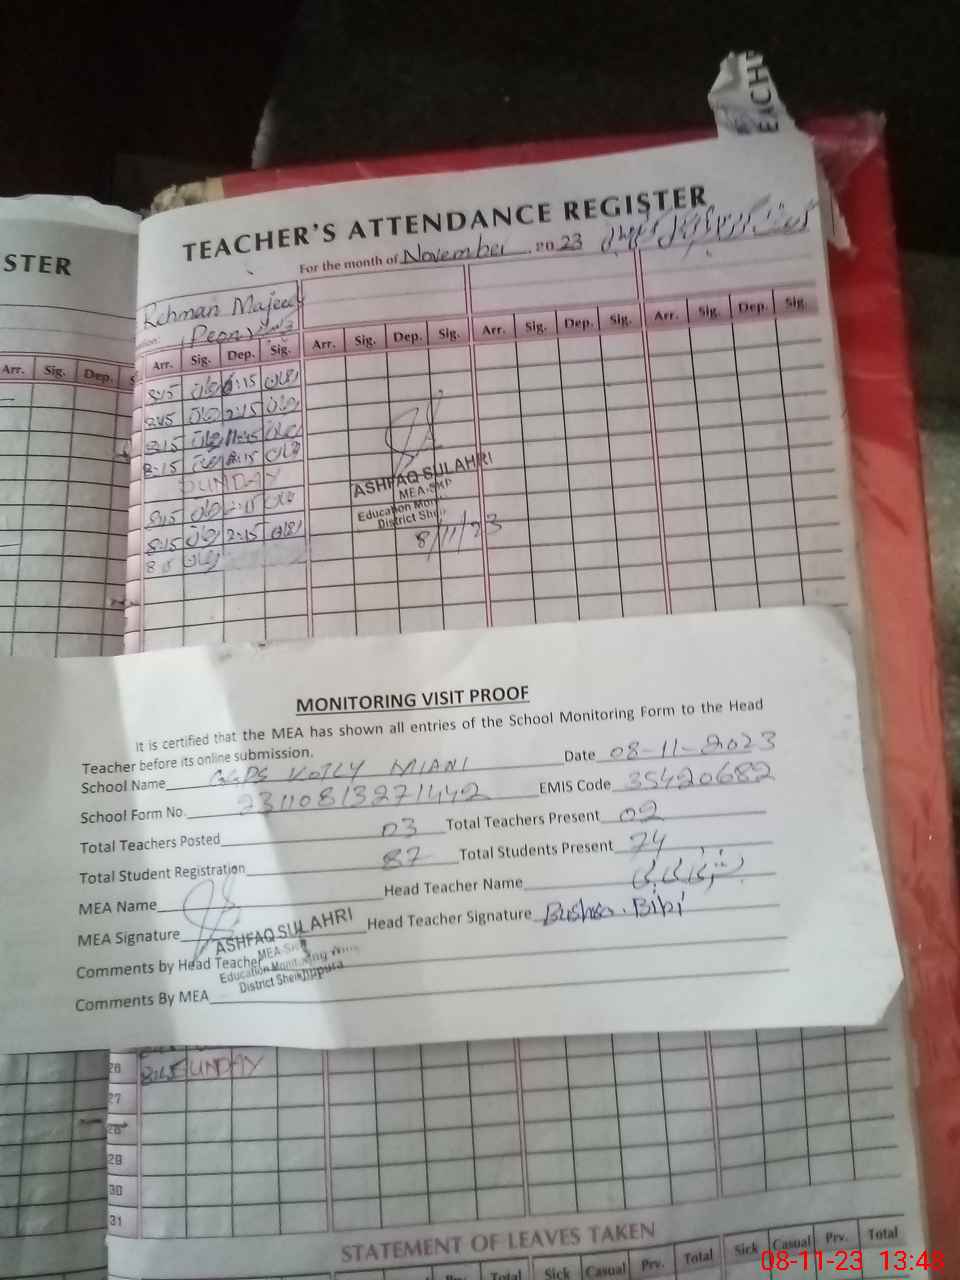 TEACHER'S ATTENDANCE REGISTER
STER
For the month of November 2023
Rehman Majeed
(Peon)
Arr. Sig. Dep. Sig. Arr. Sig. Dep. Sig. Arr. Sig. Dep. Sig. Arr. Sig. Dep. Sig.
Arr. Sig. Dep.
8:15
8:15 2:15
8:15 11:45
8:15 2:15
SUNDAY
8:15 2:15
8:15 2:15
8:15
ASHFAQ SULAHRI
MEA-SKP
Education Mon
District Shei
8/11/23
MONITORING VISIT PROOF
It is certified that the MEA has shown all entries of the School Monitoring Form to the Head
Teacher before its online submission.
Date 08-11-2023
School Name GGPS KOTLY MIANI
EMIS Code 35420682
School Form No. 23110813271442
Total Teachers Posted 03 Total Teachers Present 02
Total Student Registration 87 Total Students Present 74
MEA Name Head Teacher Name بشریٰ بی بی
MEA Signature Head Teacher Signature Bushra Bibi
ASHFAQ SULAHRI
MEA-SKP
Education Monitoring
District Sheikhupura
Comments by Head Teacher
Comments By MEA
26 8:15 SUNDAY
27
28
29
30
31
STATEMENT OF LEAVES TAKEN
Prv. Total Sick Casual Prv. Total Sick Casual Prv. Total
08-11-23 13:48